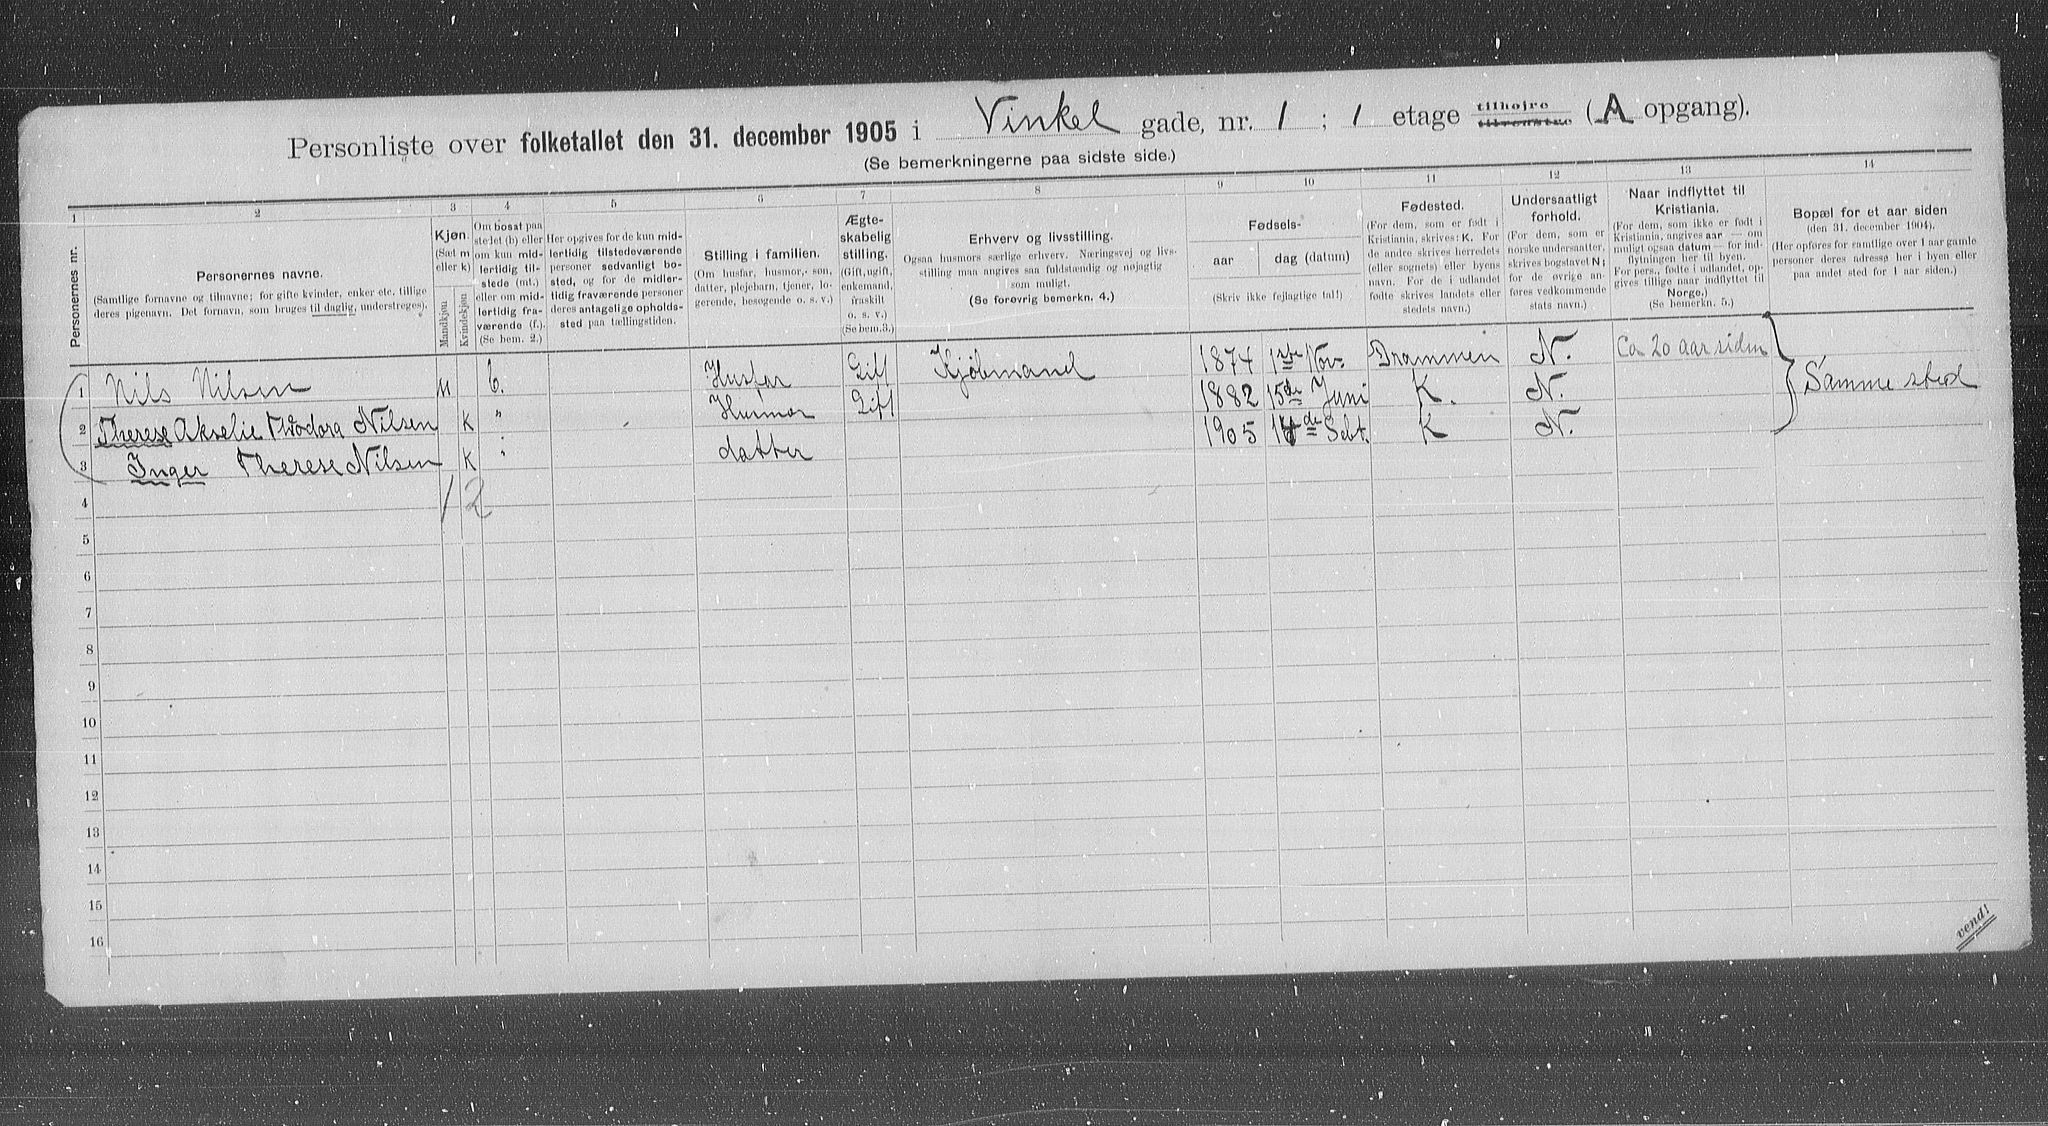 Personliste over folketallet den 31. december 1905 i Vinkel gade, nr. 1 ; 1 etage tilhøjre tilvenstre (A opgang).
(Se bemerkningerne paa sidste side.)
1 2 3 4 5 6 7 8 9 10 11 12 13 14
Personernes nr.
Personernes navne.
(Samtlige fornavne og tilnavne; for gifte kvinder, enker etc. tillige
deres pigenavn. Det fornavn, som bruges til daglig, understreges).
Kjøn.
(Sæt m
eller k)
Mandkjøn
Kvindekjøn
Om bosat paa
stedet (b) eller
om kun mid-
lertidig til-
stede (mt.)
eller om mid-
lertidig fra-
værende (f.).
(Se bem. 2.)
Her opgives for de kun mid-
lertidig tilstedeværende
personer sedvanligt bo-
sted, og for de midler-
tidig fraværende personer
deres antagelige opholds-
sted paa tællingstiden.
Stilling i familien.
(Om husfar, husmor,- søn,
datter, plejebarn, tjener, lo-
gerende, besøgende o. s. v.)
Ægte-
skabelig
stilling.
(Gift, ugift,
enkemand,
fraskilt
o. s. v.)
(Se bem. 3.)
Erhverv og livsstilling.
Ogsaa husmors særlige erhverv. Næringsvej og livs-
stilling maa angives saa fuldstændig og nøjagtig
som muligt.
(Se forøvrig bemerkn. 4.)
Fødsels-
aar
dag (datum)
(Skriv ikke fejlagtige tal!)
Fødested.
(For dem, som er født i
Kristiania, skrives: K. For
de andre skrives herredets
(eller sognets) eller byens
navn. For de i udlandet
fødte skrives landets eller
stedets navn.)
Undersaatligt
forhold.
(For dem, som er
norske undersaatter,
skrives bogstavet N;
for de øvrige an-
føres vedkommende
stats navn.)
Naar indflyttet til
Kristiania.
(For dem, som ikke er født i
Kristiania, angives aar — om
muligt ogsaa datum — for ind-
flytningen her til byen.
For pers., fødte i udlandet, op-
gives tillige naar indflyttet til
Norge.)
(Se bemerkn. 5.)
Bopæl for et aar siden
(den 31. december 1904).
(Her opføres for samtlige over 1 aar gamle
personer deres adresse her i byen eller
paa andet sted for 1 aar siden.)
1 Nils Nilsen M b. Husfar Gift Kjøbmand 1874 1ste Nov. Drammen N. Ca 20 aar siden
2 Therese Akselie Theodora Nilsen K " Husmor Gift 1882 15de Juni K. N. Samme sted
3 Inger Therese Nilsen K " datter 1905 de Sebt. K N.
4 1 2
5
6
7
8
9
10
11
12
13
14
15
16
vend!